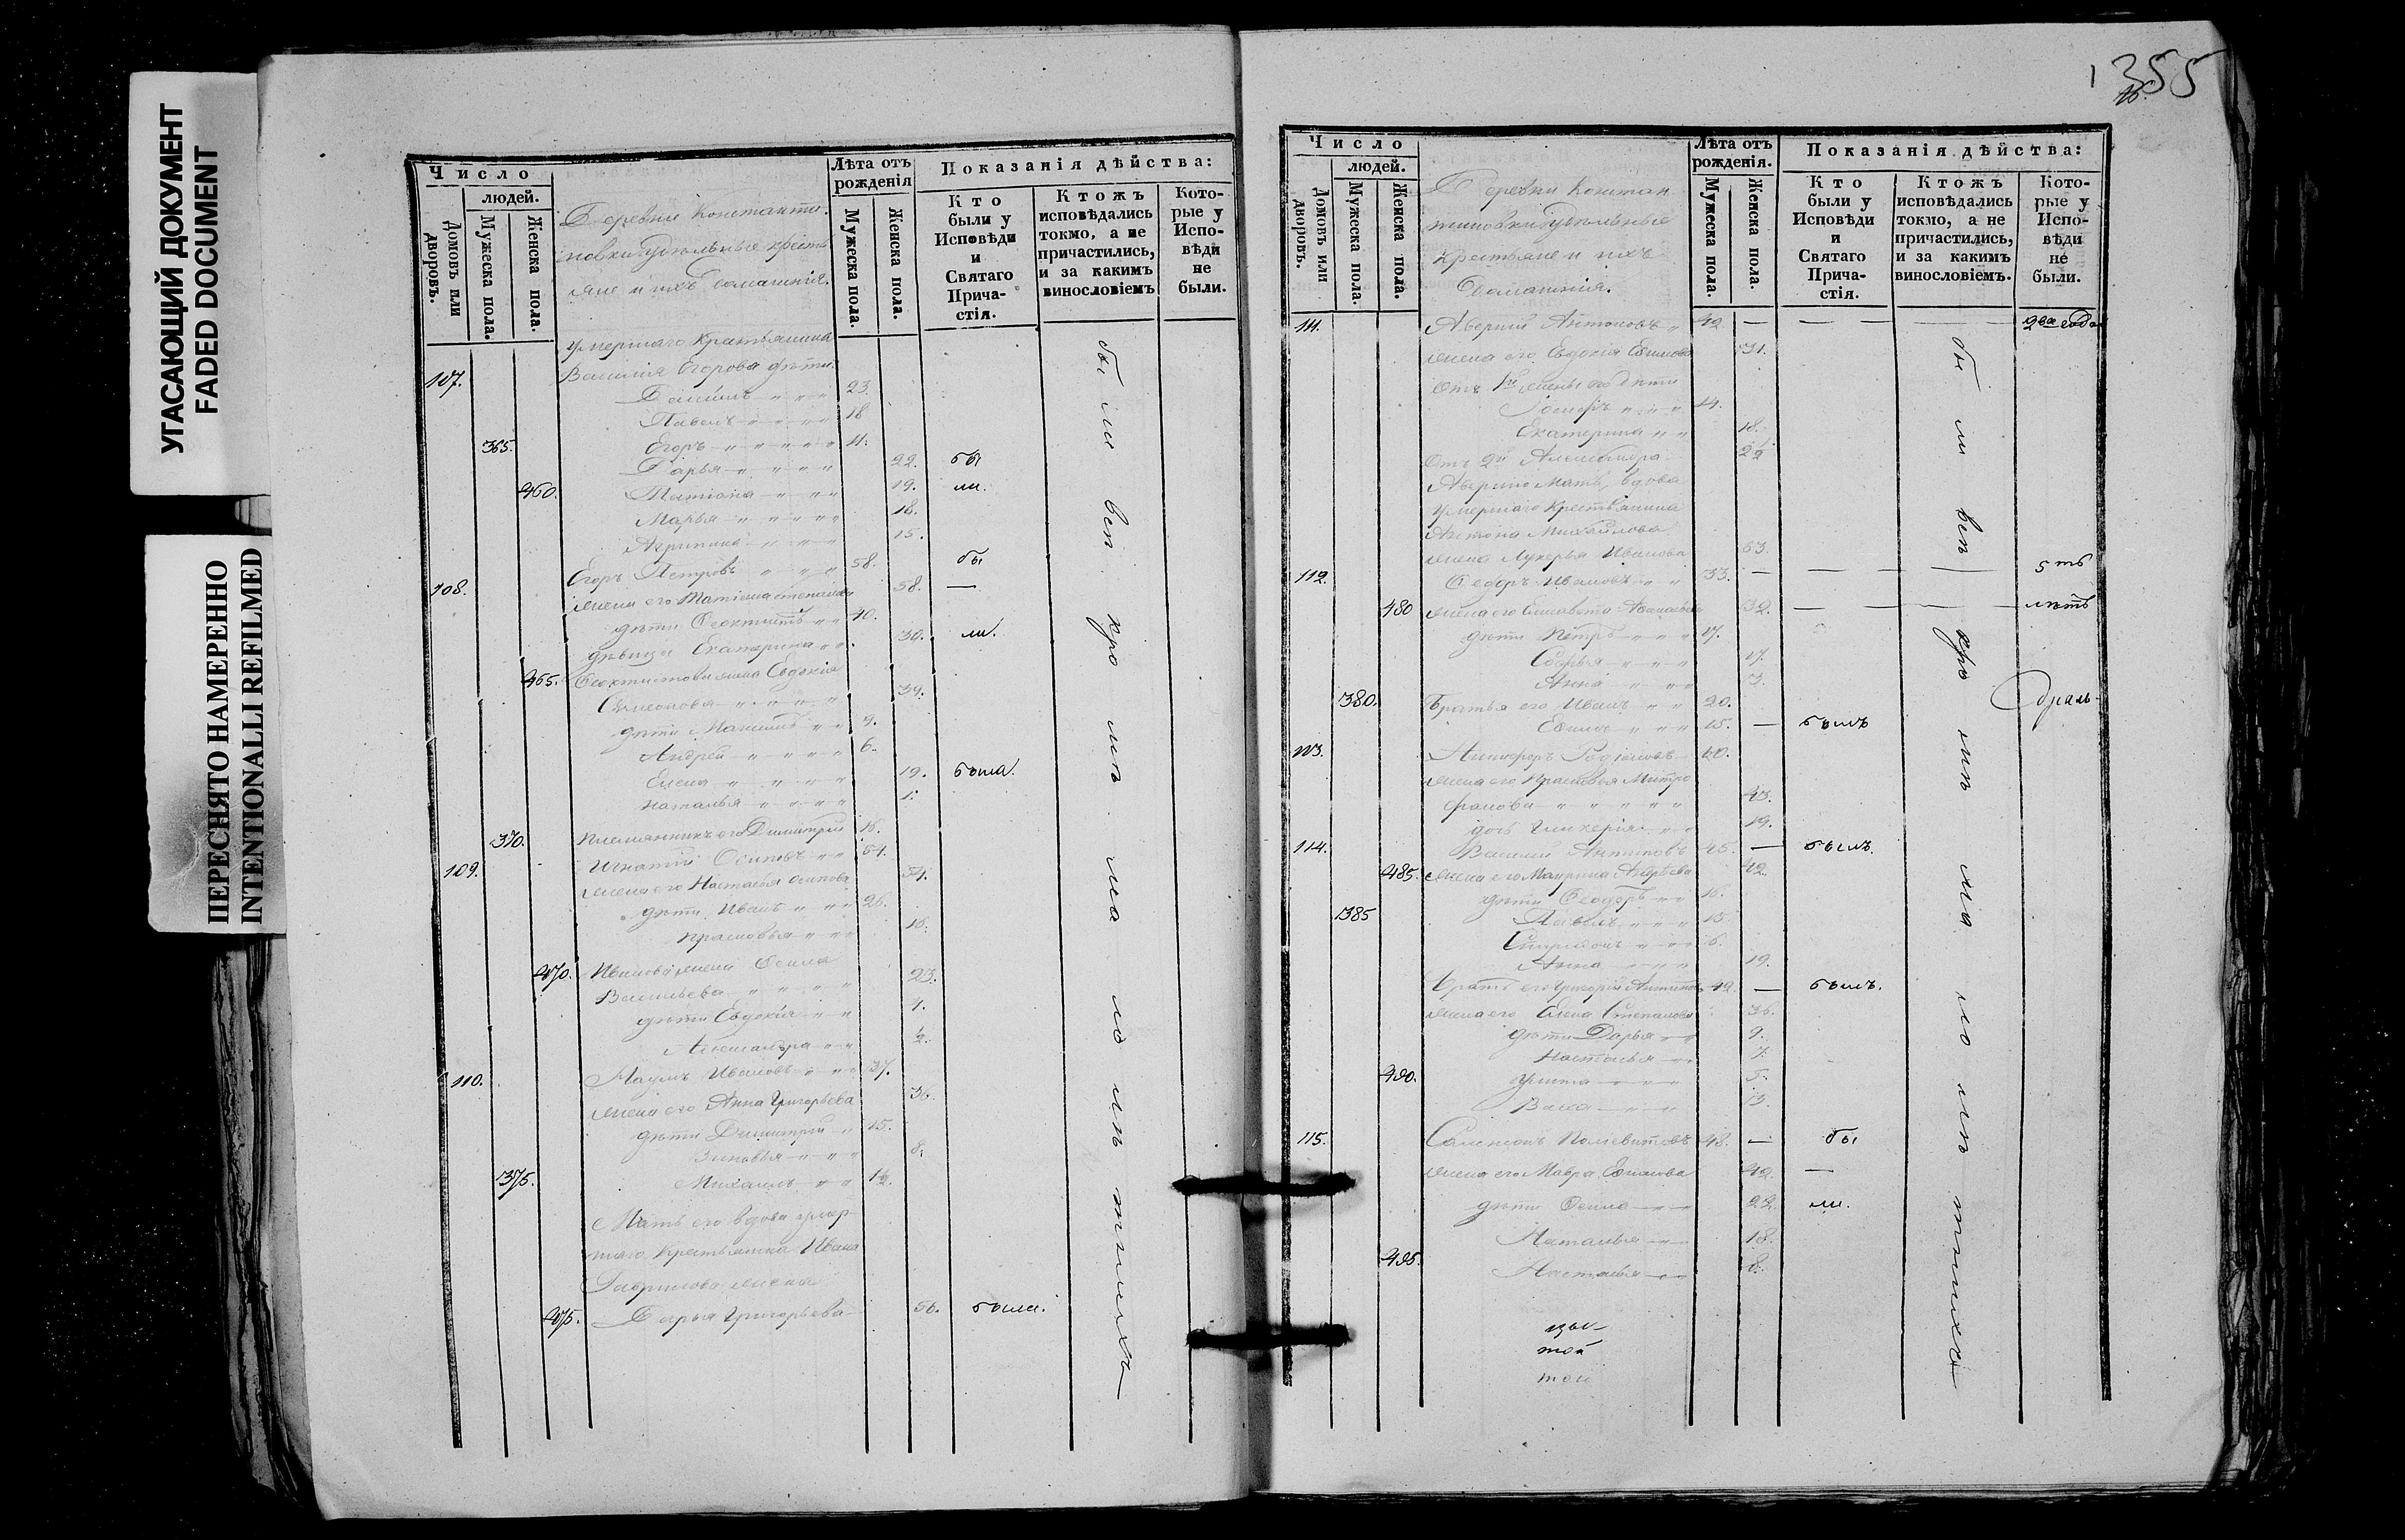 УГАСАЮЩИЙ ДОКУМЕНТ
FADED DOCUMENT
ПЕРЕСНЯТО НАМЕРЕННО
INTENTIONALLI REFILMED
Число
людей.
Домовъ или дворовъ.
Мужеска пола.
Женска пола.
Деревни Константи-
новки Удѣльные кресть
яне и ихъ домашнія.
Лѣта отъ рожденія
Мужеска пола.
Женска пола.
Показанія дѣйства:
Кто были у Исповѣди и Святаго Прича- стія.
Ктожъ исповѣдались токмо, а не причастились, и за какимъ винословіемъ
Кото- рые у Испо- вѣди не были.
умершаго Крестьянина
107. Василія Егорова дѣти
Даніилъ 23.
Павелъ 18
365. Егоръ 11.
Дарья 22. бы
460. Татіана 19. ли.
Марья 18.
Агрипина 15.
108. Егоръ Петровъ 58. бы
жена его Татіана Степанова 58. —
дѣти Феоктистъ 40.
дѣвица Екатерина 30. ли.
465. Феоктистова жена Евдокія
Симеонова 39.
дѣти Максимъ 9.
Андрей 6.
Елена 19. была.
Наталья 1.
370. племянникъ его Димитрій 16.
109. Игнатій Осиповъ 54.
жена его Настасья Осипова 54.
дѣти Иванъ 26.
Прасковья 16.
470. Иванова жена Фекла
Васильева 23.
дѣти Евдокія 4.
Александра 2.
110. Наумъ Ивановъ 37.
жена его Анна Григорьева 36.
дѣти Димитрій 15.
Зиновья 8.
375. Михаилъ 1/2.
Мать его вдова умер-
шаго Крестьянина Ивана
Гаврилова жена
475. Дарья Григорьева 56. была.
бы ли всѣ кро мѣ ма ло лѣ тныхъ
355
Число
людей.
Домовъ или дворовъ.
Мужеска пола.
Женска пола.
Деревни Констан
тиновки удѣльные
Крестьяне и ихъ
домашнія.
Лѣта отъ рожденія.
Мужеска пола.
Женска пола.
Показанія дѣйства:
Кто были у Исповѣди и Святаго Прича- стія.
Ктожъ исповѣдались токмо, а не причастились, и за какимъ винословіемъ.
Кото- рые у Испо- вѣди не были.
111. Аверкій Антоновъ 42 — — — два года
жена его Евдокія Ефимова 31.
отъ 1й жены его дѣти
Іосифъ 14.
Екатерина 18.
отъ 2й Александра 2 1/2
Мать, вдова
умершаго Крестьянина
Антона Михайлова
жена Лукерья Иванова 63.
112. Федоръ Ивановъ 33. — — — 5ть
480 жена его Елисавета 32. — — лѣтъ
дѣти Петръ 17.
Софья 17.
Анна 3.
380. Братья его Иванъ 20.
Ефимъ 15. — былъ
113. Родіоновъ 60.
жена его Прасковья Митро
фанова 43.
дочь Гликерія 19.
114. Василій Антиповъ 45. — былъ.
485. жена его Марина Андреева 42
дѣти Феодоръ 16.
385 Павелъ 15
Спиридонъ 6.
Анна 19.
Братъ его Григорій Антиповъ 42. — былъ.
жена его Елена Степанова 36.
дѣти Дарья 9.
Настасья 7.
490. Улита 5.
Васса 3
115. 48. — бы
жена его Мавра Ефимова 42 —
дѣти Фекла 22 ли.
Наталья 18.
495. Настасья 8.
бы ли всѣ кро мѣ ма ло лѣ тныхъ